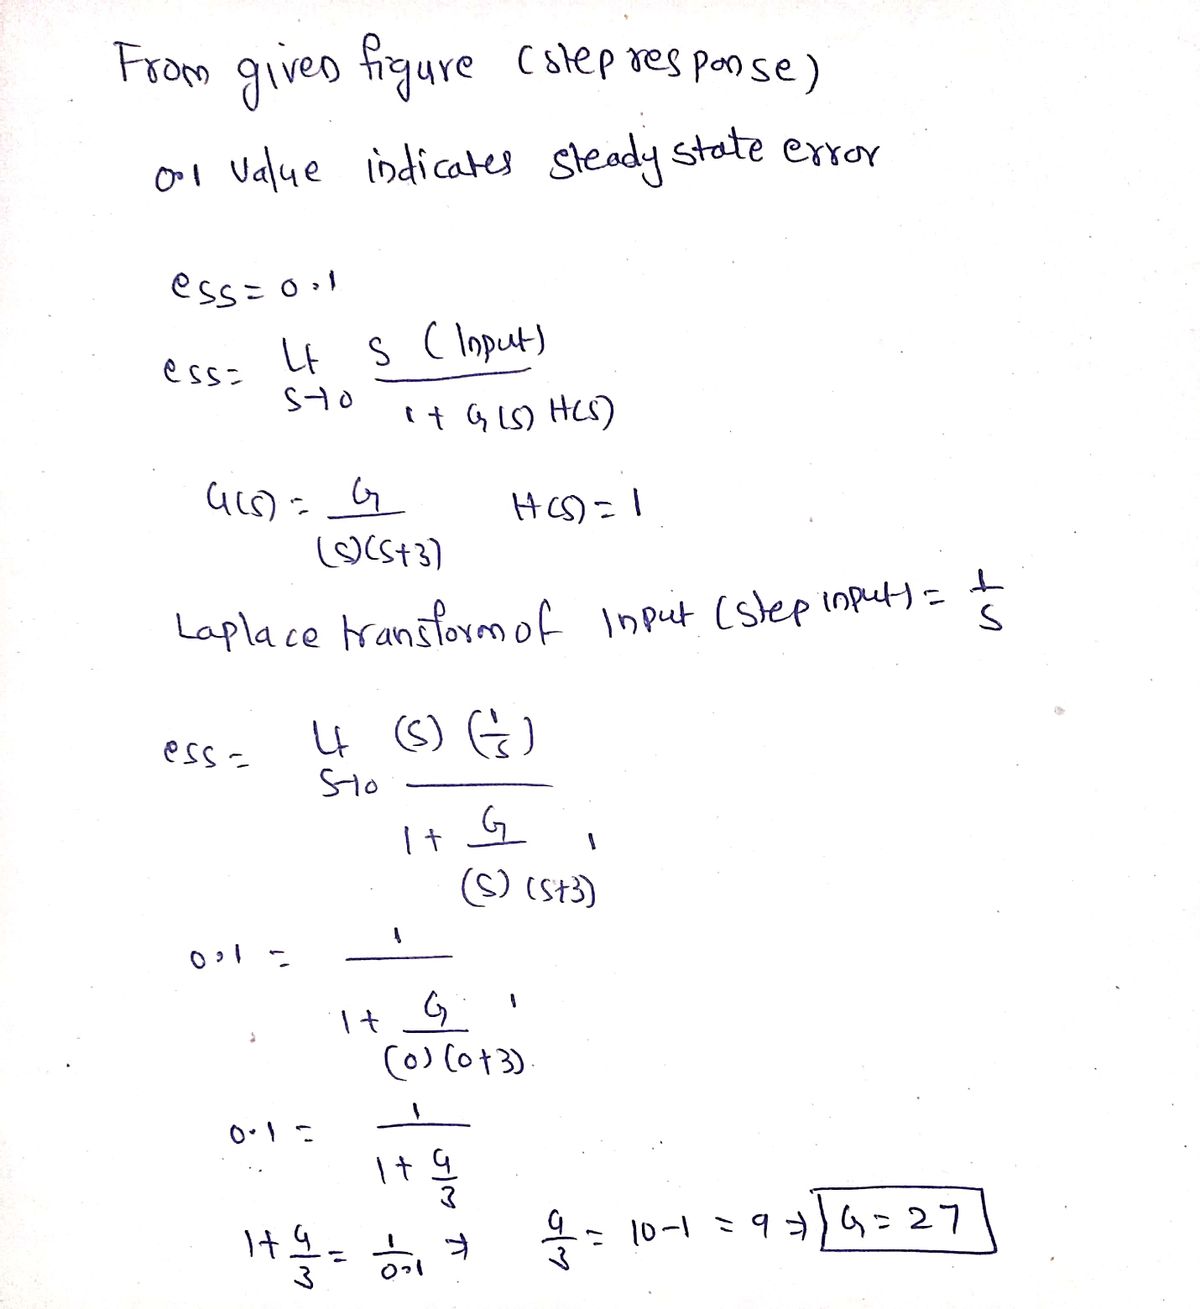 From given figure (step response)
0.1 value indicates steady state error
ess = 0.1
ess = Lt s→0 s (Input) / 1 + G(s) H(s)
G(s) = G / (s)(s+3) H(s) = 1
Laplace transform of Input (step input) = 1/s
ess = Lt s→0 (s) (1/s) / 1 + G / (s) (s+3) 1
0.1 = 1 / 1 + G / (0) (0+3) 1
0.1 = 1 / 1 + G/3
1 + G/3 = 1/0.1 ⇒ G/3 = 10-1 = 9 ⇒ G = 27